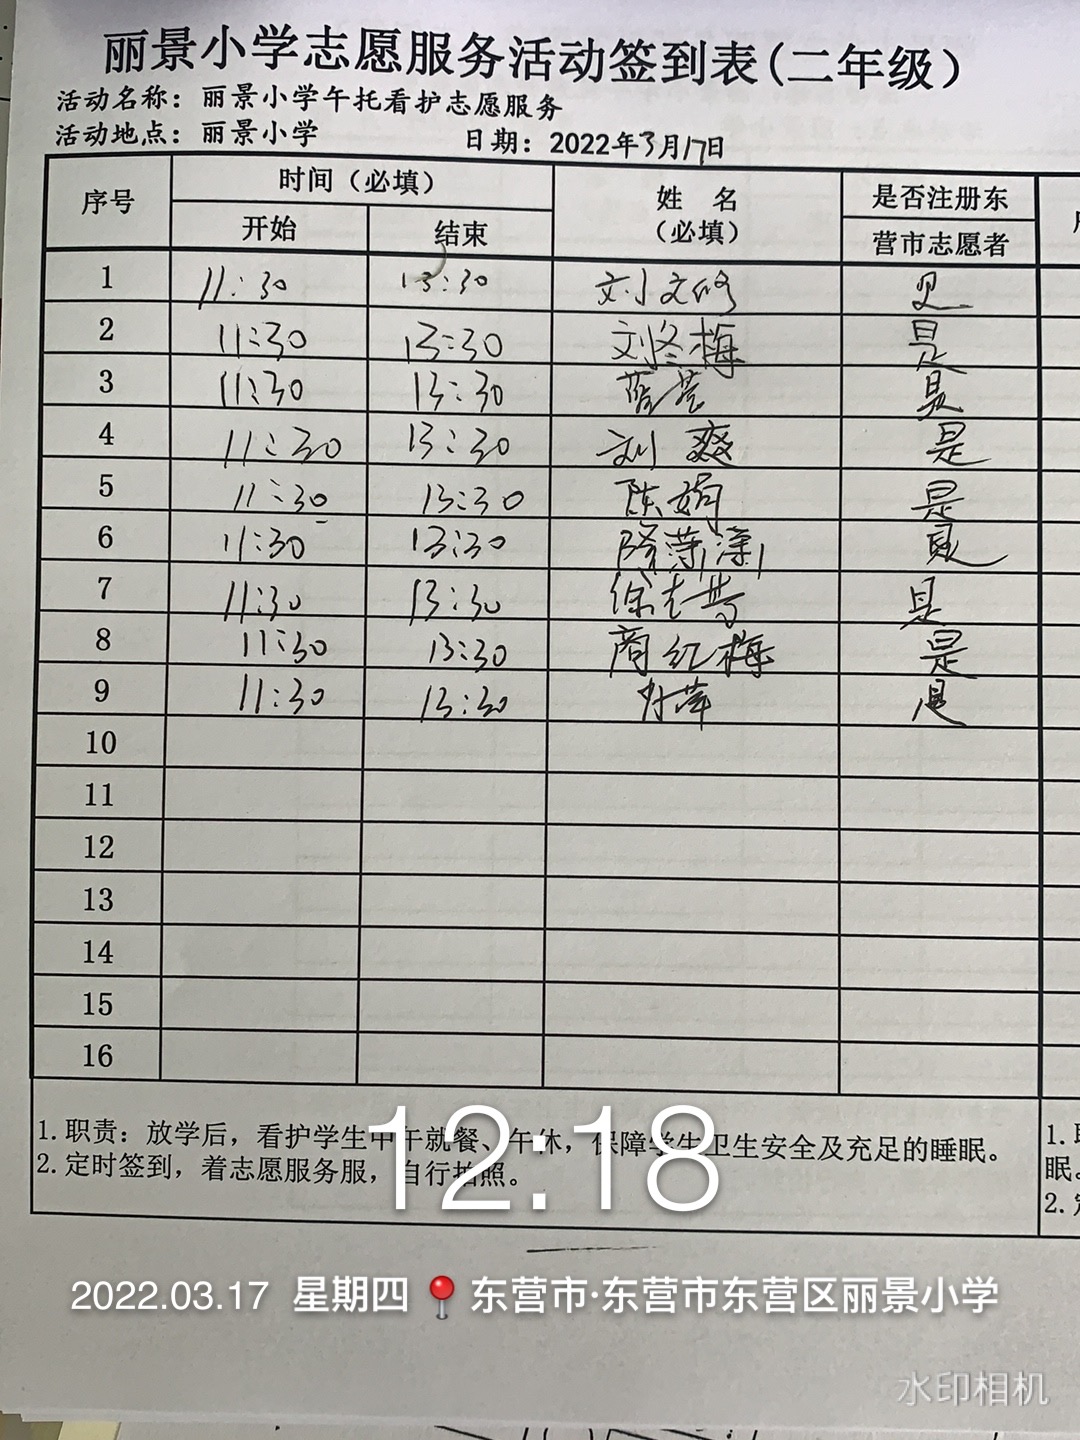 丽景小学志愿服务活动签到表(二年级)
活动名称：丽景小学午托看护志愿服务
活动地点：丽景小学 日期：2022年3月17日
序号 时间（必填） 姓 名 是否注册东
开始 结束 （必填） 营市志愿者
1 11:30 13:30 刘文修 是
2 11:30 13:30 刘冬梅 是
3 11:30 13:30 是
4 11:30 13:30 刘爽 是
5 11:30 13:30 陈娟 是
6 11:30 13:30 是
7 11:30 13:30 徐志芳 是
8 11:30 13:30 商红梅 是
9 11:30 13:30 是
10
11
12
13
14
15
16
1.职责：放学后，看护学生中午就餐、午休，保障学生卫生安全及充足的睡眠。
2.定时签到，着志愿服务服，自行拍照。
1.
眠。
2.
12:18
2022.03.17 星期四 东营市·东营市东营区丽景小学
水印相机